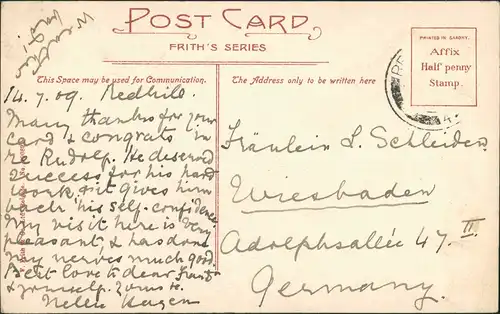 Weather
POST CARD
FRITH'S SERIES
PRINTED IN SAXONY.
Affix
Half penny
Stamp.
This Space may be used for Communication.
The Address only to be written here
14.7.09. Redhill.
Many thanks for your
card & congrats in
re Rudolf. He deserved
success for his hard
work, & it gives him
back his self-confidence
My visit here is very
pleasant, & has done
my nerves much good.
Best love to dear
& yourself. Yours
Nellie Hagen
Fräulein L. Schleiden
Wiesbaden
Adolphsallée 47 II.
Germany.